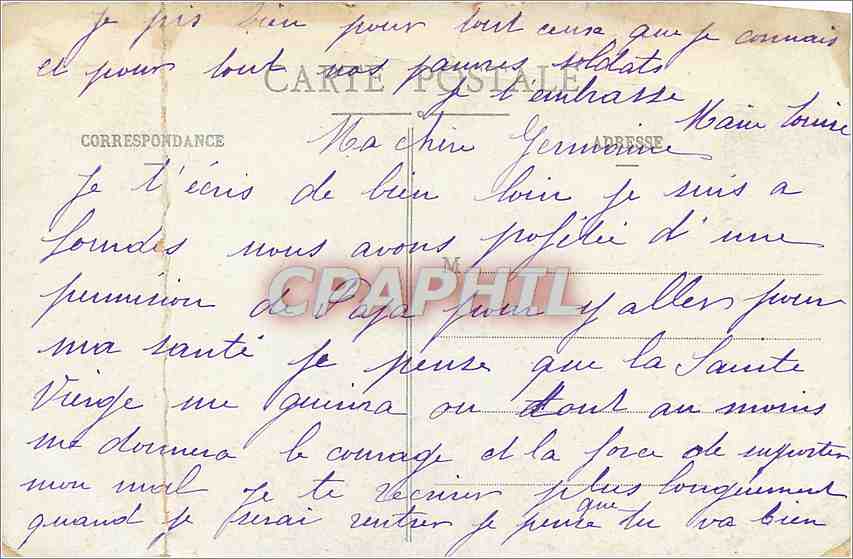 Je pris bien pour tout ceux que je connais
et pour tout nos pauvres soldats
CARTE POSTALE
je t'embrasse
Marie Louise
CORRESPONDANCE
ADRESSE
Ma chère Germaine
Je t'écris de bien loin je suis a
Lourdes nous avons profitée d'une
M
CPAPHIL
permision de Papa pour y aller pour
ma santé je pense que la Sainte
Vierge me guerira ou tout au moins
me donnera le courage et la force de suporter
mon mal je te recrirer plus longuement
quand je serai rentrer je pense que tu va bien